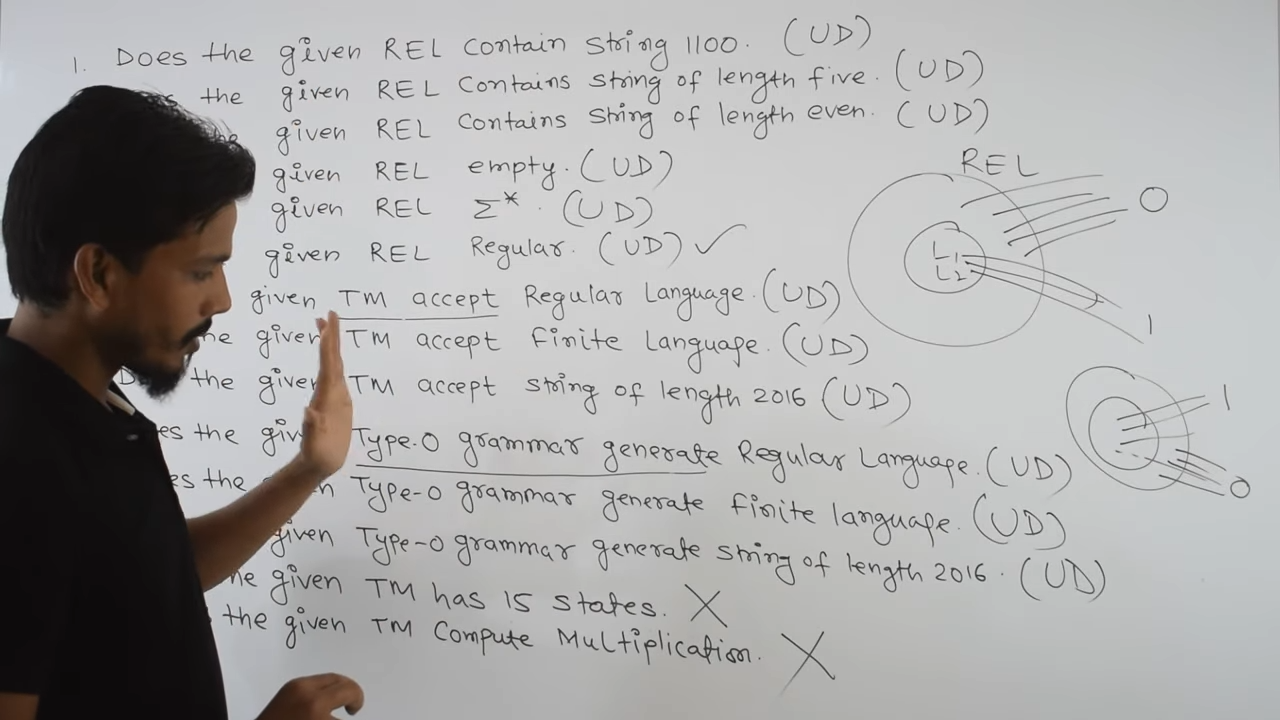 1. Does the given REL contain string 1100. (UD)
the given REL contains string of length five. (UD)
given REL contains string of length even. (UD)
given REL empty. (UD)
given REL Σ*. (UD)
given REL Regular. (UD) ✓
given TM accept Regular Language. (UD)
given TM accept finite Language. (UD)
the given TM accept string of length 2016 (UD)
the Type-0 grammar generate Regular Language. (UD)
the Type-0 grammar generate finite language. (UD)
given Type-0 grammar generate string of length 2016. (UD)
given TM has 15 states. X
the given TM Compute Multiplication. X
REL
0
L1
L2
1
1
0